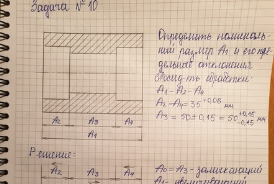 Задача №10
Определить номиналь-
ный размер A₁ и его пре-
дельные отклонения
A₁-A₂-A₄
A₂-A₄=35⁺⁰·⁰⁸ мм
A₃=50±0,15=50
A₂ A₃ A₄
A₁
Решение:
A₂ A₃ A₄
A₀=A₃-замыкающий